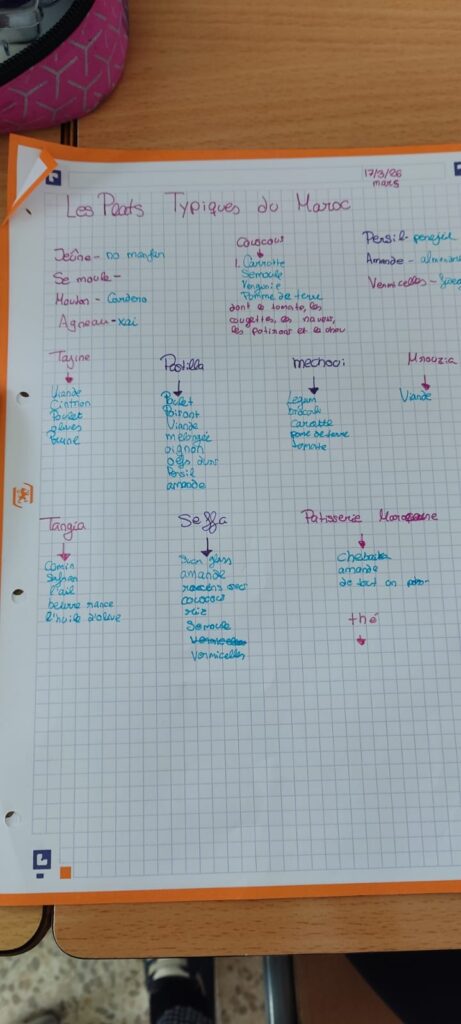 17/3/26
mars
Les Plats Typiques du Maroc
Jeûne - no menjen
Semoule -
Mouton - Cordero
Agneau - xai
Couscous
1. Carrotte
Semoule
Pomme de terre
dont le tomate, les
cougettes, les navous,
les potirons et le chou
Persil - perejil
Amande -
Vermicelles -
Tajine
Viande
Cintron
Poulet
olives
Prune
Pastilla
Poulet
Poisont
Viande
melangée
oignon
oefs durs
Persil
amande
mechoui
Legum
brocoli
carrotte
tomatte
Mrouzia
Viande
Tangia
Comin
Safran
l'ail
beurre rance
l'huile d'olive
Seffa
amande
cococus
Semoule
Vermicelles
Patisserie
Chebakia
amande
de tout un
thé